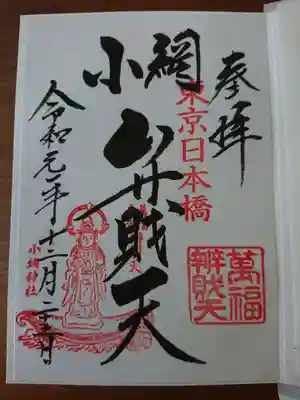 奉拝
東京日本橋
小網
弁財天
萬福
辨財天
令和元年十二月二十三日
小網神社